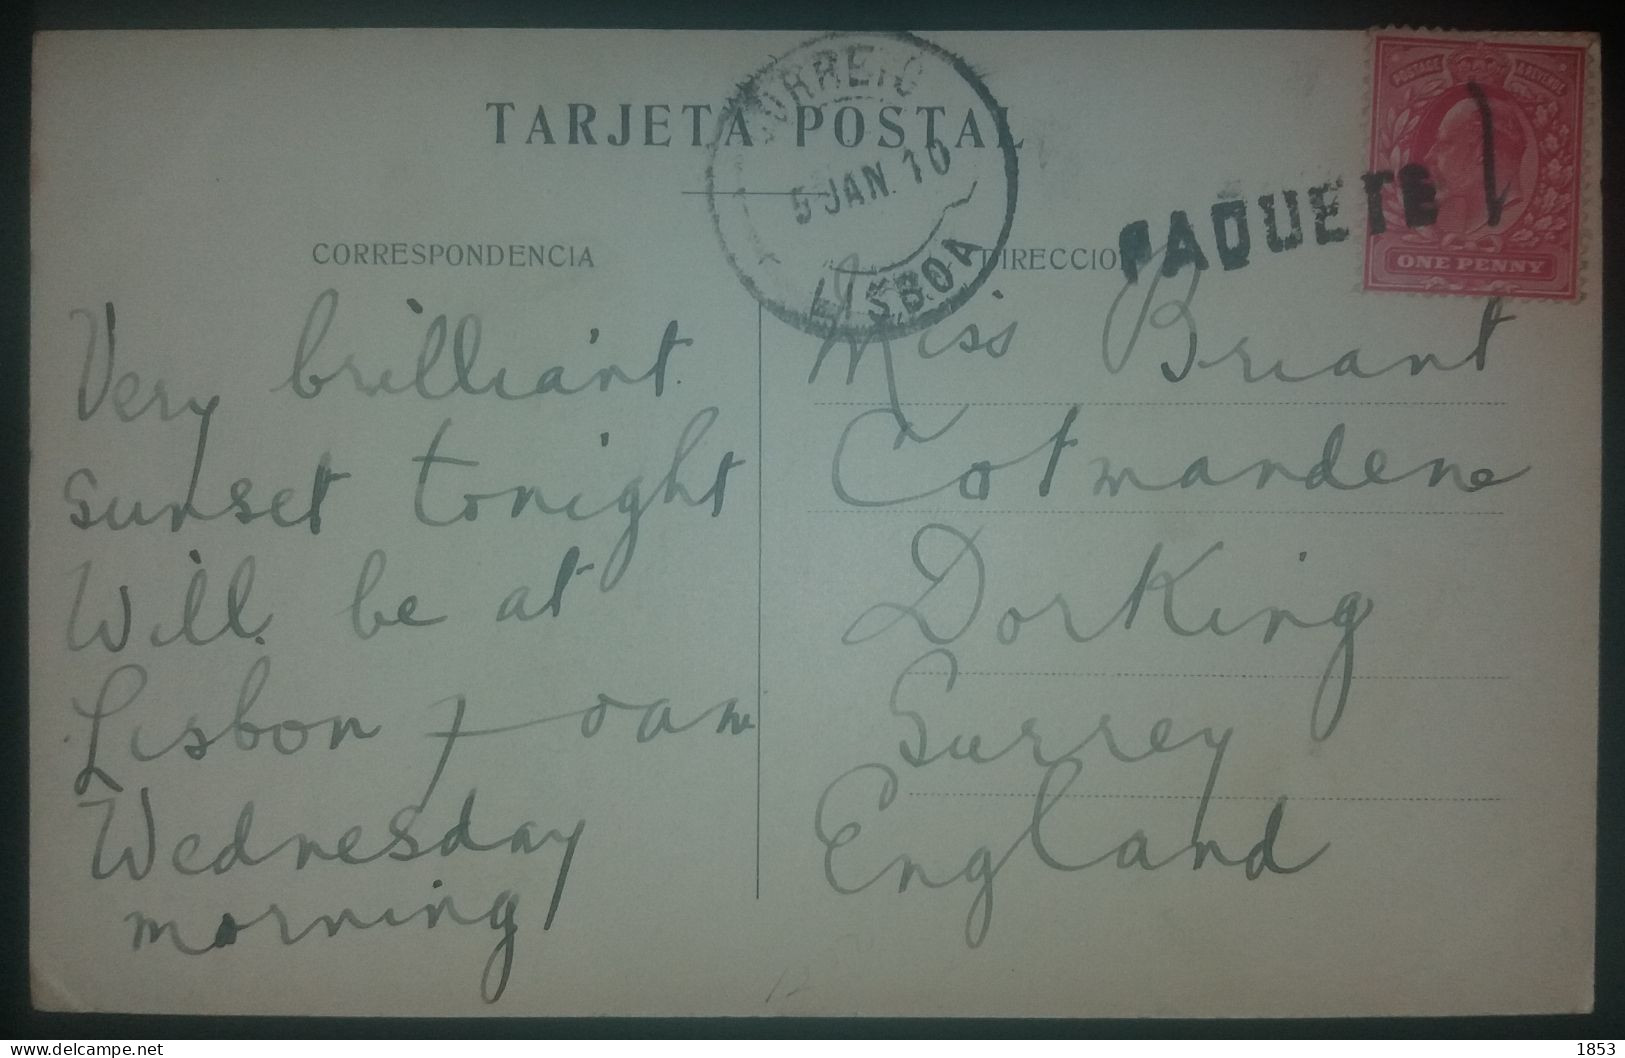 TARJETA POSTAL
CORREIO
5 JAN. 10
LISBOA
PAQUETE
POSTAGE REVENUE
ONE PENNY
CORRESPONDENCIA
DIRECCION
Very brilliant
sunset tonight
Will be at
Lisbon
Wednesday
morning
Miss Briant
Cotmandene
Dorking
Surrey
England
12
delcampe.net
1853